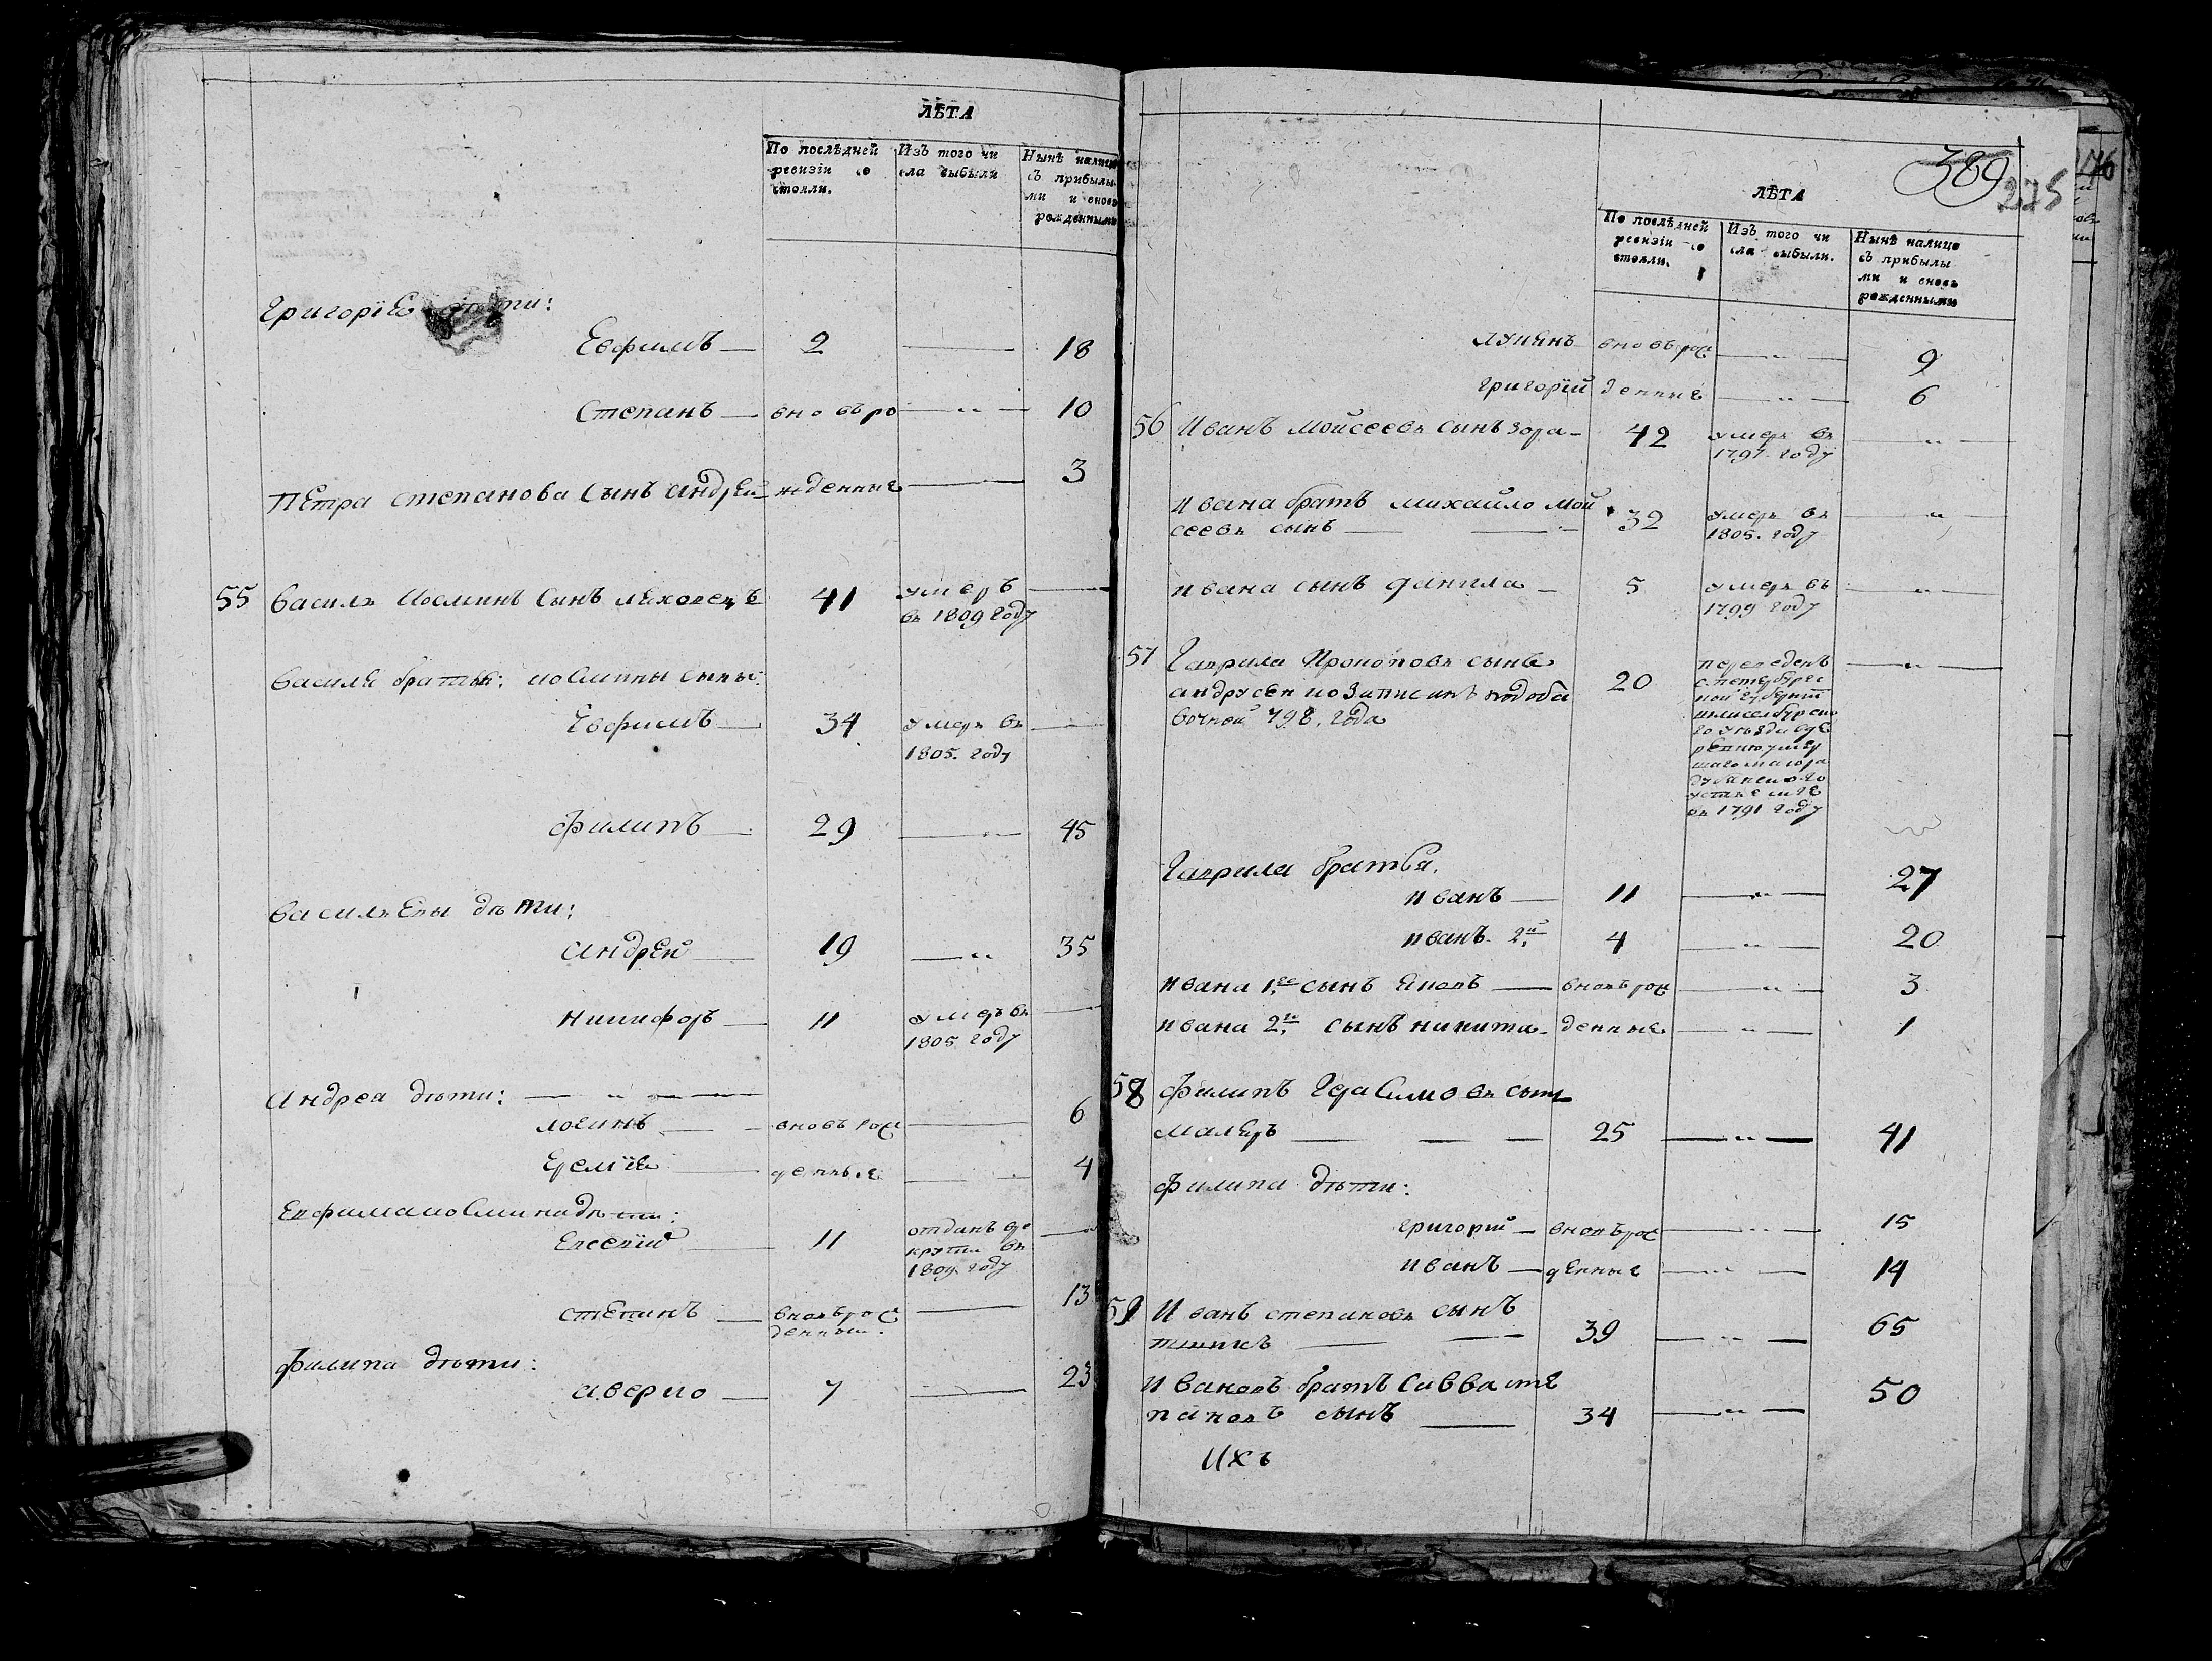 ЛѢТА
По послѣдней ревизіи со стояли.
Изъ того чи сла выбыли
Нынѣ налицо съ прибылы ми и вновь рожденными
дѣти:
Евфимъ — 2 — 18
Степанъ — вновь ро — 10
Петра степанова сынъ андрей — жденные — 3
55 василь сынъ 41 умеръ —
въ 1809 году
василя братья: сыны:
Евфимъ — 34 умеръ въ —
1805. году
филипъ — 29 — „ 45
васильевы дѣти:
андрей — 19 — „ 35
никифоръ — 11 умеръ въ —
1805 году
андрея дѣти: — „ —
логинъ — вновь рож — 6
Еремѣй — денные — 4
дѣти:
Евсевій — 11 отданъ вре —
круты въ
1809. году
степанъ — вновь рож — 13
денный.
филипа дѣти:
аверко — 7 — 23
389
275
ЛѢТА
По послѣдней ревизіи со стояли.
Изъ того чи сла выбыли.
Нынѣ налицо съ прибылы ми и вновь рожденными
лукянъ вновь рож — „ — 9
григорій денные — „ — 6
56 Иванъ Мойсеевъ сынъ зора — 42 умеръ въ — „ —
1797. году
Ивана братъ михайло мой 32 умеръ въ — „ —
сеевъ сынъ — 1805. году
ивана сынъ данила — 5 умеръ въ — „ —
1799 году
57 Гаврила Прокоповъ сынъ
андрусенко 20 — „ —
798. года
переведенъ
с петербургс
кой губерніи
шлиселбурско
го уѣзда
в 1791 году
Гаврила братья.
иванъ — 11 — „ — 27
иванъ. 2й 4 — „ — 20
ивана 1го сынъ яковъ — вновь рож — „ — 3
ивана 2го сынъ никита — денные — „ — 1
58 филипъ Герасимовъ сынъ
маляръ — 25 — „ — 41
филипа дѣти:
григорій — вновь рож — „ — 15
иванъ — денные — „ — 14
59 Иванъ степановъ сынъ
39 — „ — 65
Ивановъ братъ Савва сте
пановъ сынъ — 34 — „ — 50
Ихъ